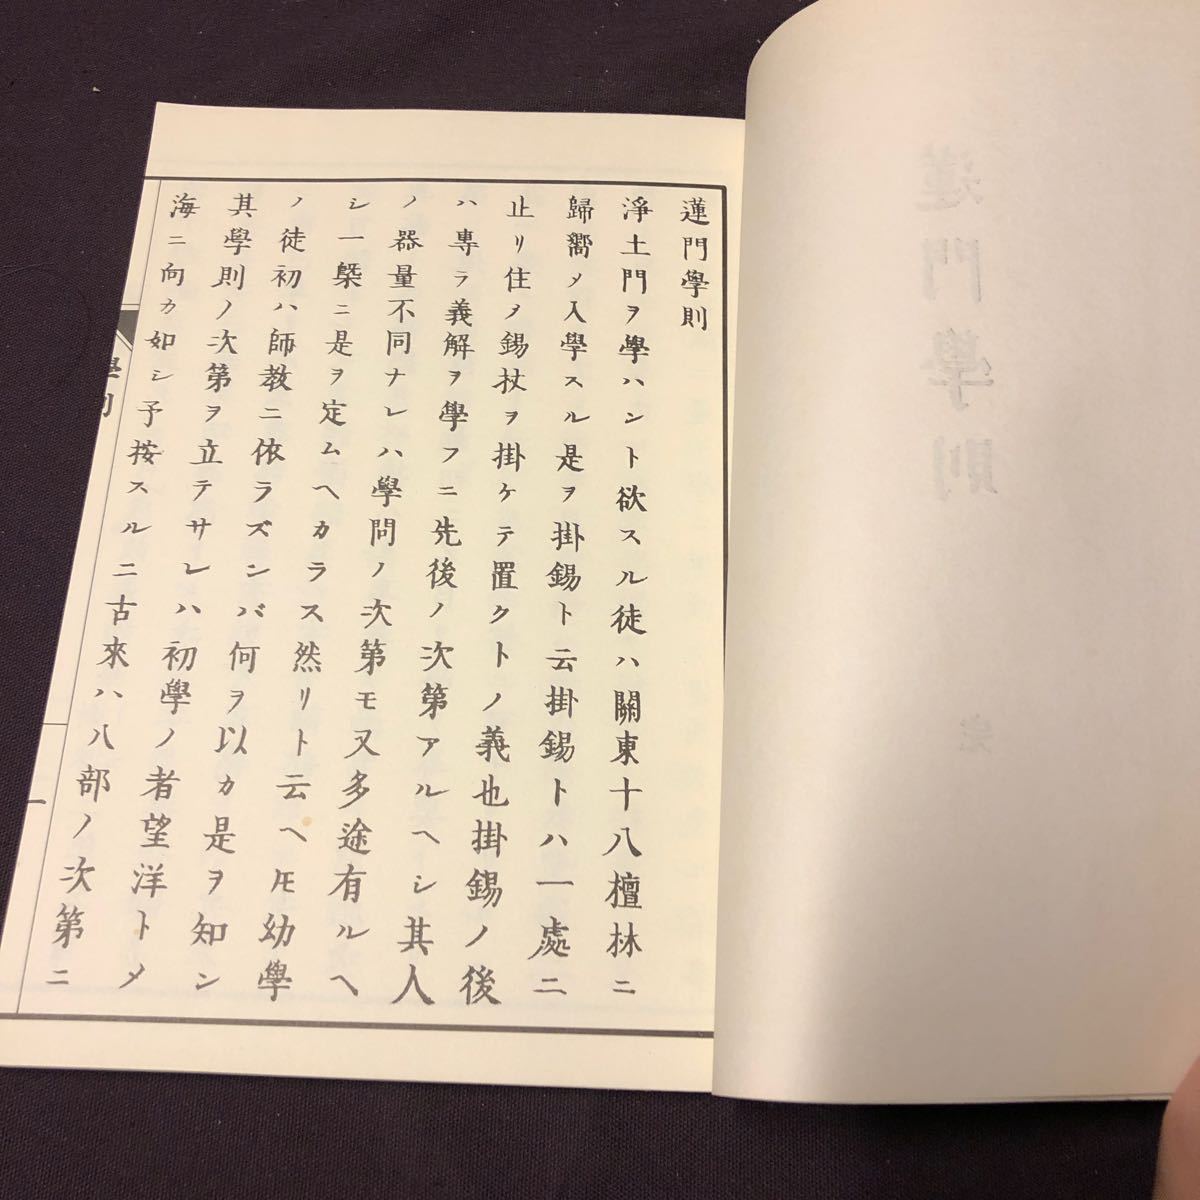 蓮門學則
淨土門ヲ學ハント欲スル徒ハ關東十八檀林ニ
歸嚮メ入學スル是ヲ掛錫ト云掛錫トハ一處ニ
止リ住メ錫杖ヲ掛ケテ置クトノ義也掛錫ノ後
ハ專ラ義解ヲ學フニ先後ノ次第アルヘシ其人
ノ器量不同ナレハ學問ノ次第モ又多途有ルヘ
シ一槩ニ是ヲ定ムヘカラス然リト云ヘ𪜈幼學
ノ徒初ハ師教ニ依ラズンバ何ヲ以カ是ヲ知ン
其學則ノ次第ヲ立テサレハ初學ノ者望洋トメ
海ニ向カ如シ予按スルニ古來ハ八部ノ次第ニ
學則
一
蓮門學則
完